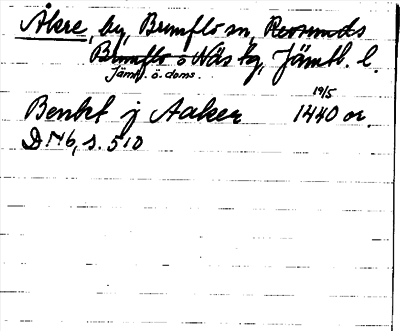 Åkre, by, Brunflo sn, Revsunds
Brunflo o Näs tg, Jämtl. l.
Jämtl. ö. doms.
19/5
Benkt j Aaker 1440 or.
DN6, s. 510